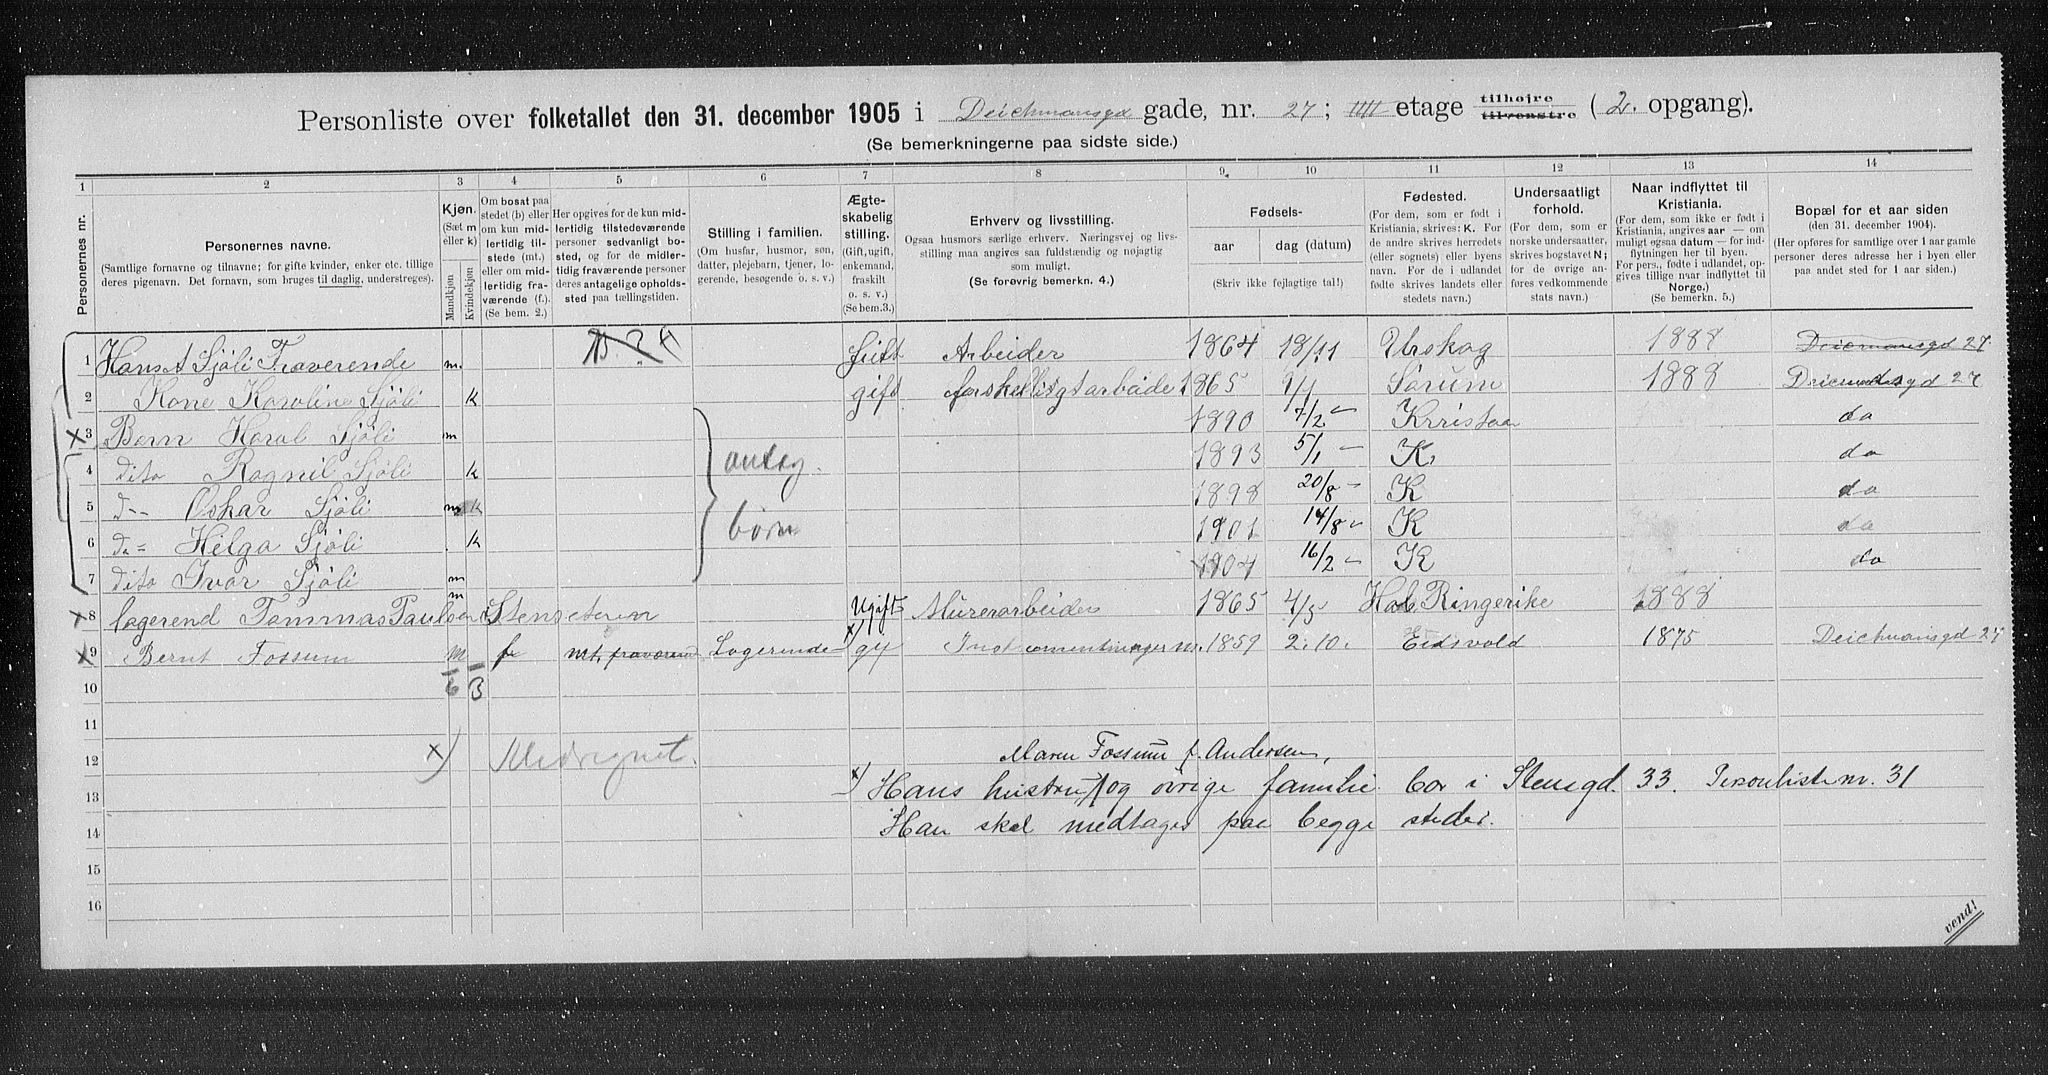 Personliste over folketallet den 31. december 1905 i Deichmansgd gade, nr. 27; IIII etage tilhøjre tilvenstre (2. opgang).
(Se bemerkningerne paa sidste side.)
1 2 3 4 5 6 7 8 9. 10 11 12 13 14
Personernes nr.
Personernes navne.
(Samtlige fornavne og tilnavne; for gifte kvinder, enker etc. tillige
deres pigenavn. Det fornavn, som bruges til daglig, understreges).
Kjøn.
(Sæt m
eller k)
Mandkjøn
Kvindekjøn
Om bosat paa
stedet (b) eller
om kun mid-
lertidig til-
stede (mt.)
eller om mid-
lertidig fra-
værende (f.).
(Se bem. 2.)
Her opgives for de kun mid-
lertidig tilstedeværende
personer sedvanligt bo-
sted, og for de midler-
tidig fraværende personer
deres antagelige opholds-
sted paa tællingstiden.
Stilling i familien.
(Om husfar, husmor, søn,
datter, plejebarn, tjener, lo-
gerende, besøgende o. s. v.)
Ægte-
skabelig
stilling.
(Gift, ugift,
enkemand,
fraskilt
o. s. v.)
(Se bem.3.)
Erhverv og livsstilling.
Ogsaa husmors særlige erhverv. Næringsvej og livs-
stilling maa angives saa fuldstændig og nøjagtig
som muligt.
(Se forøvrig bemerkn. 4.)
Fødsels-
aar dag (datum)
(Skriv ikke fejlagtige tal!)
Fødested.
(For dem, som er født i
Kristiania, skrives: K. For
de andre skrives herredets
(eller sognets) eller byens
navn. For de i udlandet
fødte skrives landets eller
stedets navn.)
Undersaatligt
forhold.
(For dem, som er
norske undersaatter,
skrives bogstavet N;
for de øvrige an-
føres vedkommende
stats navn.)
Naar indflyttet til
Kristiania.
(For dem, som ikke er født i
Kristiania, angives aar — om
muligt ogsaa datum — for ind-
flytningen her til byen.
For pers., fødte i udlandet, op-
gives tillige naar indflyttet til
Norge.)
(Se bemerkn. 5.)
Bopæl for et aar siden
(den 31. december 1904).
(Her opføres for samtlige over 1 aar gamle
personer deres adresse her i byen eller
paa andet sted for 1 aar siden.)
1 Hans A Sjöli Fraverende m. Gift Arbeider 1864 18/11 Urskog 1888 Deicmansgd 27
2 Kone Karoline Sjöli k gift forskelligtarbeide 1865 9/1 Sørum 1888 Deicmansgd 27
x 3 Barn Haral Sjöli m 1890 7/2 - Krristan do
4 dito Ragnil Sjöli k antag. 1893 5/1 - K. do
5 d-- Oskar Sjöli m k 1898 20/8 - K do
6 d.= Hilga Sjöli k børn 1901 14/8 - K do
7 dito Ivar Sjöli m 1904 16/2 - K do
x 8 logerend Tommas Paulsen Stenseteren m Ugift Murerarbeider 1865 4/5 Hole Ringerike 1888
x 9 Bernt Fossum m f mt. fraværend Logerende x) gf 1859 2.10. Eidsvold 1875 Deichmansgd 27
10 6 3
11
12 x) Medregnet. Maren Fossum f. Andersen,
13 x) Hans hustru og øvrige familie bor i Stensgd. 33. Personliste nr. 31
14 Han skal medtages paa begge steder.
15
16
vend!